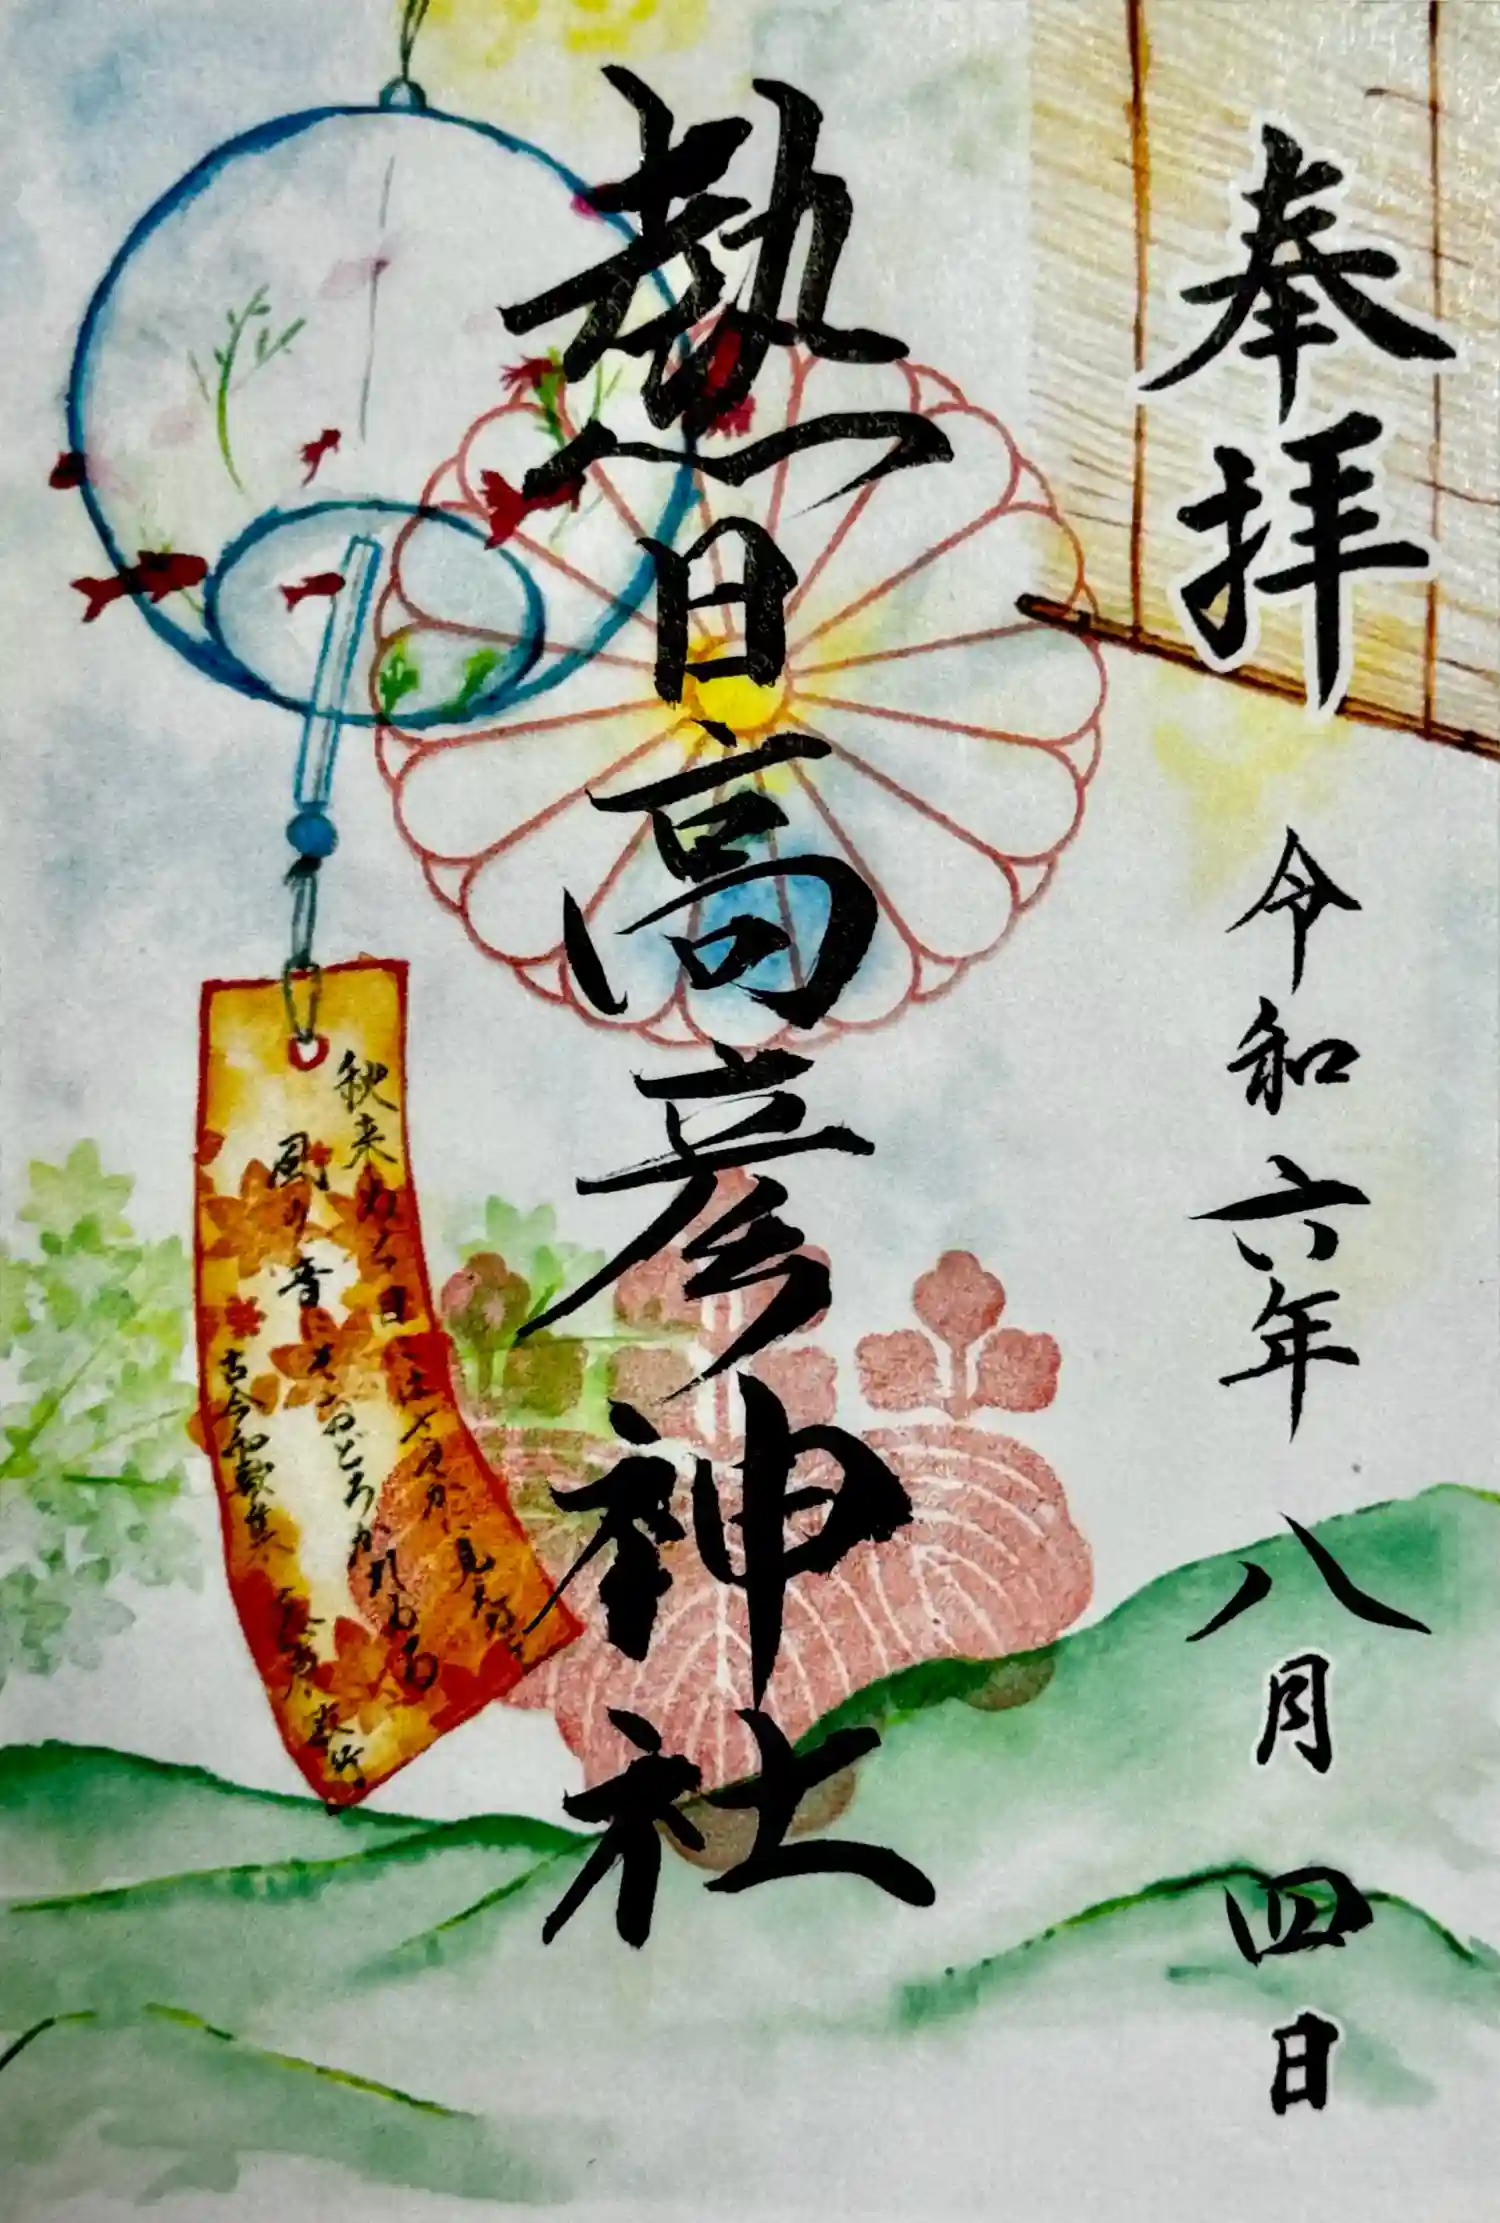 奉拝
令和六年 八月 四日
熱日高彦神社
秋来ぬと目にはさやかに見えねども
風の音にぞおどろかれぬる
古今和歌集 藤原敏行